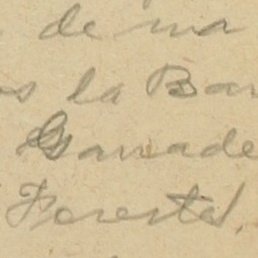 de ma
os la Ban
Ganade
Forestal.